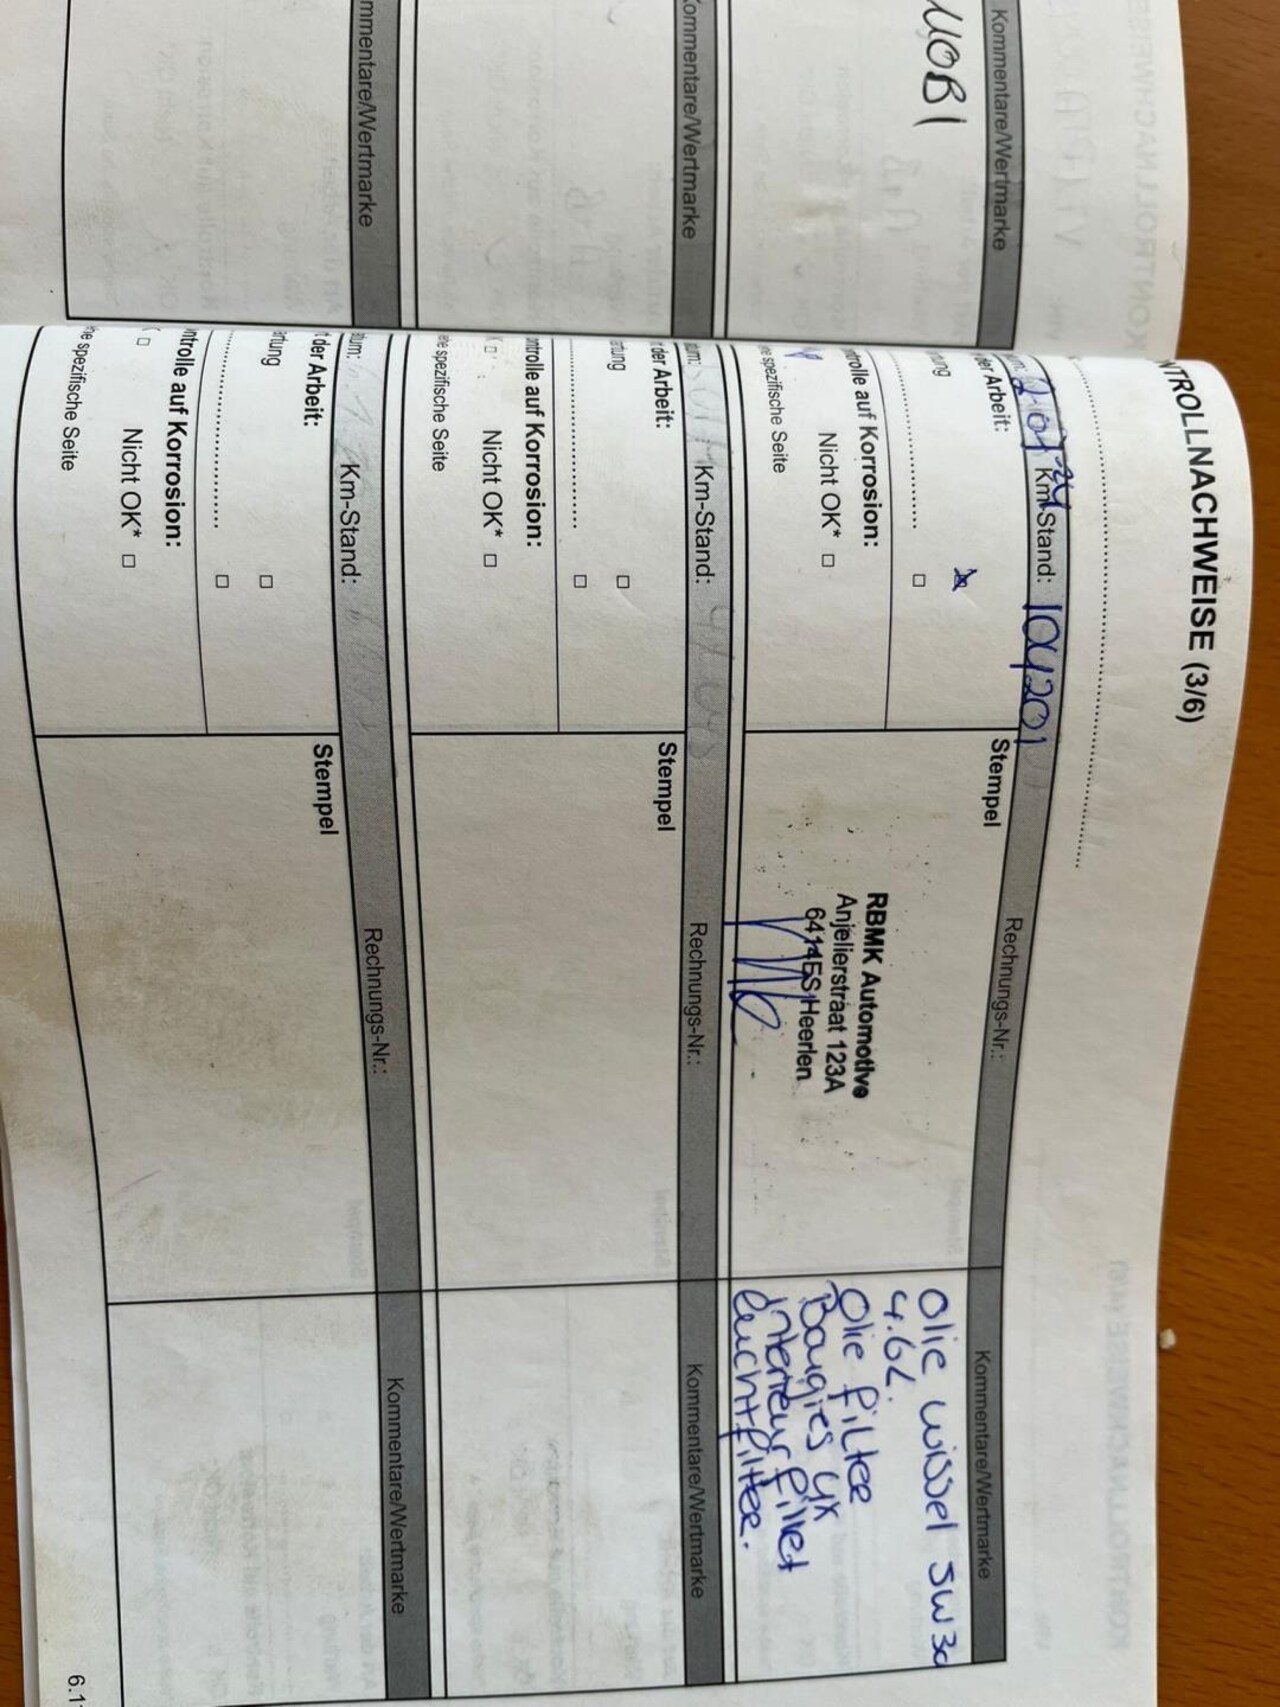 MOBI
Kommentare/Wertmarke
Kommentare/Wertmarke
mmentare/Wertmarke
NTROLLNACHWEISE (3/6)
Km-Stand: 104201
Rechnungs-Nr.:
Kommentare/Wertmarke
der Arbeit:
Stempel
ntrolle auf Korrosion:
Nicht OK*
spezifische Seite
RBMK Automotive
Anjelierstraat 123A
6414ES Heerlen
Olie wissel 5W30
4.6L.
Olie filter
Bougies 4x
Interieur filter
Luchtfilter.
Km-Stand:
Rechnungs-Nr.:
Kommentare/Wertmarke
der Arbeit:
Stempel
ntrolle auf Korrosion:
Nicht OK*
spezifische Seite
tum:
Km-Stand:
Rechnungs-Nr.:
Kommentare/Wertmarke
der Arbeit:
Stempel
rtung
ntrolle auf Korrosion:
Nicht OK*
he spezifische Seite
6.1